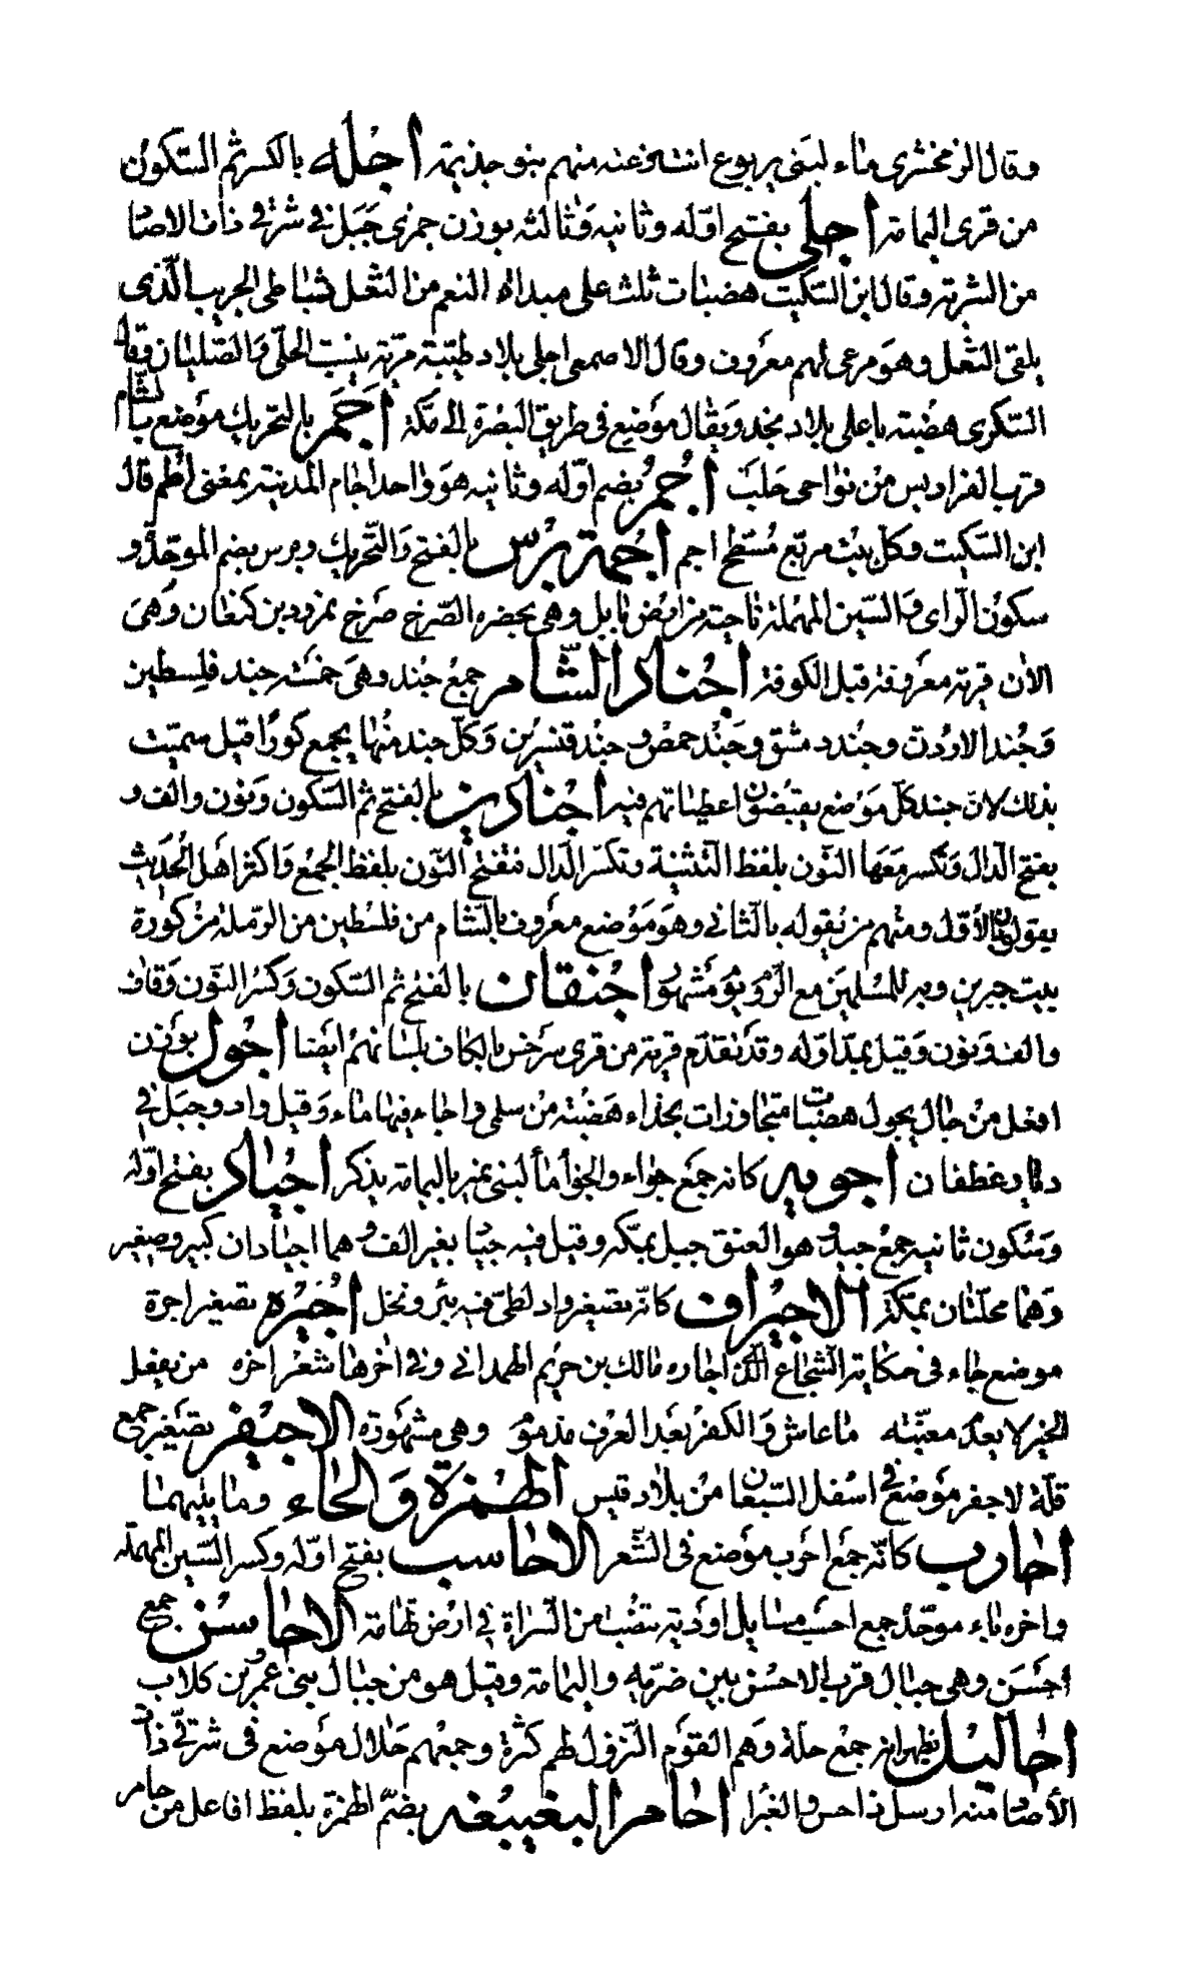 وقال الزمخشرى ماء لبنى يربوع انتزعته منهم بنو جذيمة اجله بالكسر ثم السكون
من قرى اليمامة اجلى بفتح اوله وثانيه وثالثه بوزن جمزى جبل فى شرقى ذات الاصاد
من الشربة وقال ابن السكيت هضبات ثلث على مبداة النعم من الثعل بشاطى الجريب الذى
يلقى الثعل وهو مرعى لهم معروف وقال الاصمعى اجلى بلاد طيبة مرية ينبت الحلى والصليان وقال
السكرى هضبته باعلى بلاد نجد ويقال موضع فى طريق البصرة الى مكة اجم بالتحريك موضع بالشام
قرب الفراديس من نواحى حلب اجم بضم اوله وثانيه هو واحد اجام المدينة بمعنى اطم قال
ابن السكيت وكل بيت مربع مسطح اجم اجمة برس بالفتح والتحريك وبرس بضم الموحدة و
سكون الراى والسين المهملة ناحية من ارض بابل وهى بحضرة الصرح صرح نمرود بن كنعان وهى
الان قرية معروفة قبل الكوفة اجناد الشام جمع جند وهى خمسة جند فلسطين
وجند الاردن وجند دمشق وجند حمص وجند قنسرين وكل جند منها يجمع كورا قبل سميت
بذلك لان جند كل موضع يقبضون اعطياتهم فيه اجنادين بالفتح ثم السكون ونون والف و
بفتح الدال وتكسر معها النون بلفظ التثنية وتكسر الدال فتفتح النون بلفظ الجمع واكثر اهل الحديث
يقولون الاول ومنهم من يقوله بالثانى وهو موضع معروف بالشام من فلسطين من الرملة من كورة
بيت جبرين وبه للمسلمين مع الروم يوم مشهور اجنقان بالفتح ثم السكون وكسر النون وقاف
والف ونون وقيل بمد اوله وقد تقدم قرية من قرى سرخس بالكاف بلسانهم ايضا اجول بوزن
افعل من جال يجول هضبات متجاوزات بحذاء هضبة من سلمى واجاء فيها ماء وقيل واد وجبل فى
ديار غطفان اجويه كانه جمع جواء والجواء ماء لبنى نمير باليمامة يذكر اجياد بفتح اوله
وسكون ثانيه جمع جيد وهو العنق جبل بمكة وقيل فيه جياد بغير الف وهما اجيادان كبير وصغير
وهما محلتان بمكة الاجيراف كانه تصغير واد لطى فيه بئر ونخل اجيره تصغير اجرة
موضع جاء فى حكاية الشجاع الذى اجاره مالك بن حريم الهمدانى وفى اخرها شعر اخره من يفعل
الخير لا يعدم مغبته ما عاش والكفر بعد العرف مذموم وهى مشهورة الاجيفر تصغير جمع
قلة لاجفر موضع فى اسفل السبعان من بلاد قيس الهمزة والحاء وما يليهما
احارب كانه جمع احرب موضع فى الشعر الاحاسب بفتح اوله وكسر السين المهملة
واخره باء موحدة جمع احسب مسايل اودية تنصب من السراة فى ارض تهامة الاحاسن جمع
احسن وهى جبال قرب الاحسن بين ضرية واليمامة وقيل هو من جبال بنى عمرو بن كلاب
احاليل يظهر انه جمع حلة وهم القوم النزول لهم كثرة وجمعهم حلال موضع فى شرقى ذات
الأصاد منه ارسل داحس والغبرا احامر البغيبغه بضم الهمزة بلفظ افاعل من حامر